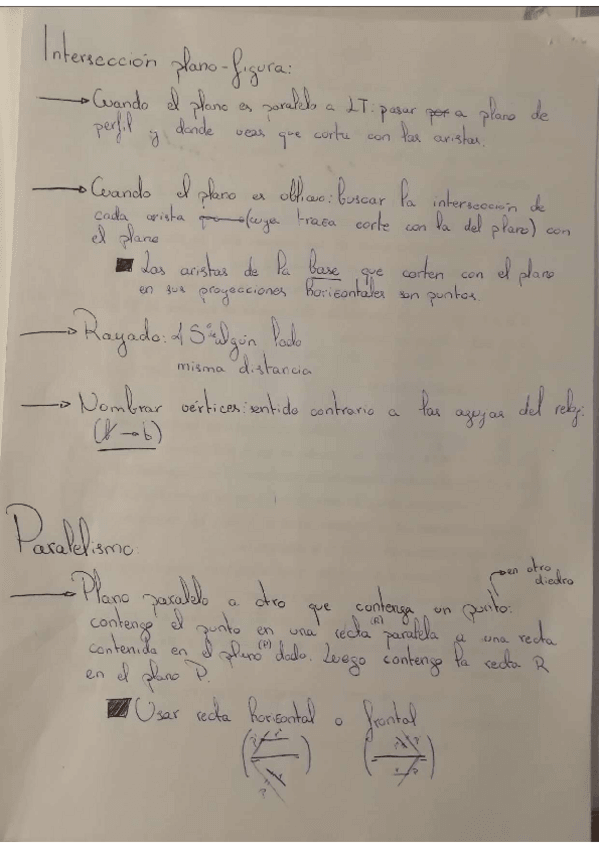 Intersección plano-figura:
→ Cuando el plano es paralelo a LT: pasar a plano de
perfil y donde veas que corta con las aristas.
→ Cuando el plano es oblicuo: buscar la intersección de
cada arista (cuya traza corte con la del plano) con
el plano
■ Las aristas de la base que corten con el plano
en sus proyecciones horizontales son puntos.
→ Rayado: 45º algún lado
misma distancia
→ Nombrar vértices: sentido contrario a las agujas del reloj.
Paralelismo
en otro
diedro
→ Plano paralelo a otro que contenga un punto:
contengo el punto en una recta (R) paralela a una recta
contenida en el plano (P) dado. Luego contengo la recta R
en el plano P.
■ Usar recta horizontal o frontal